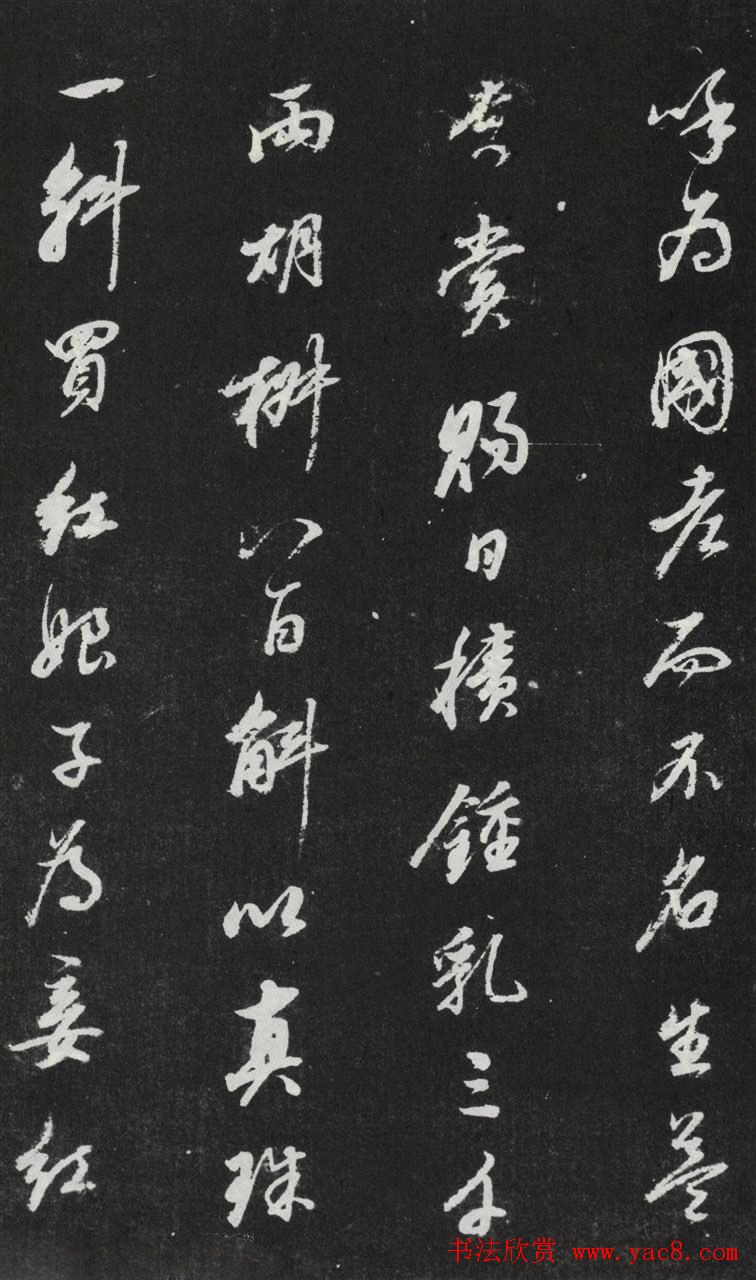 呼为國老而不名生益
贵賞賜日積鍾乳三千
兩胡椒八百斛以真珠
一斛買紅娘子為妾紅
书法欣赏 www.yac8.com